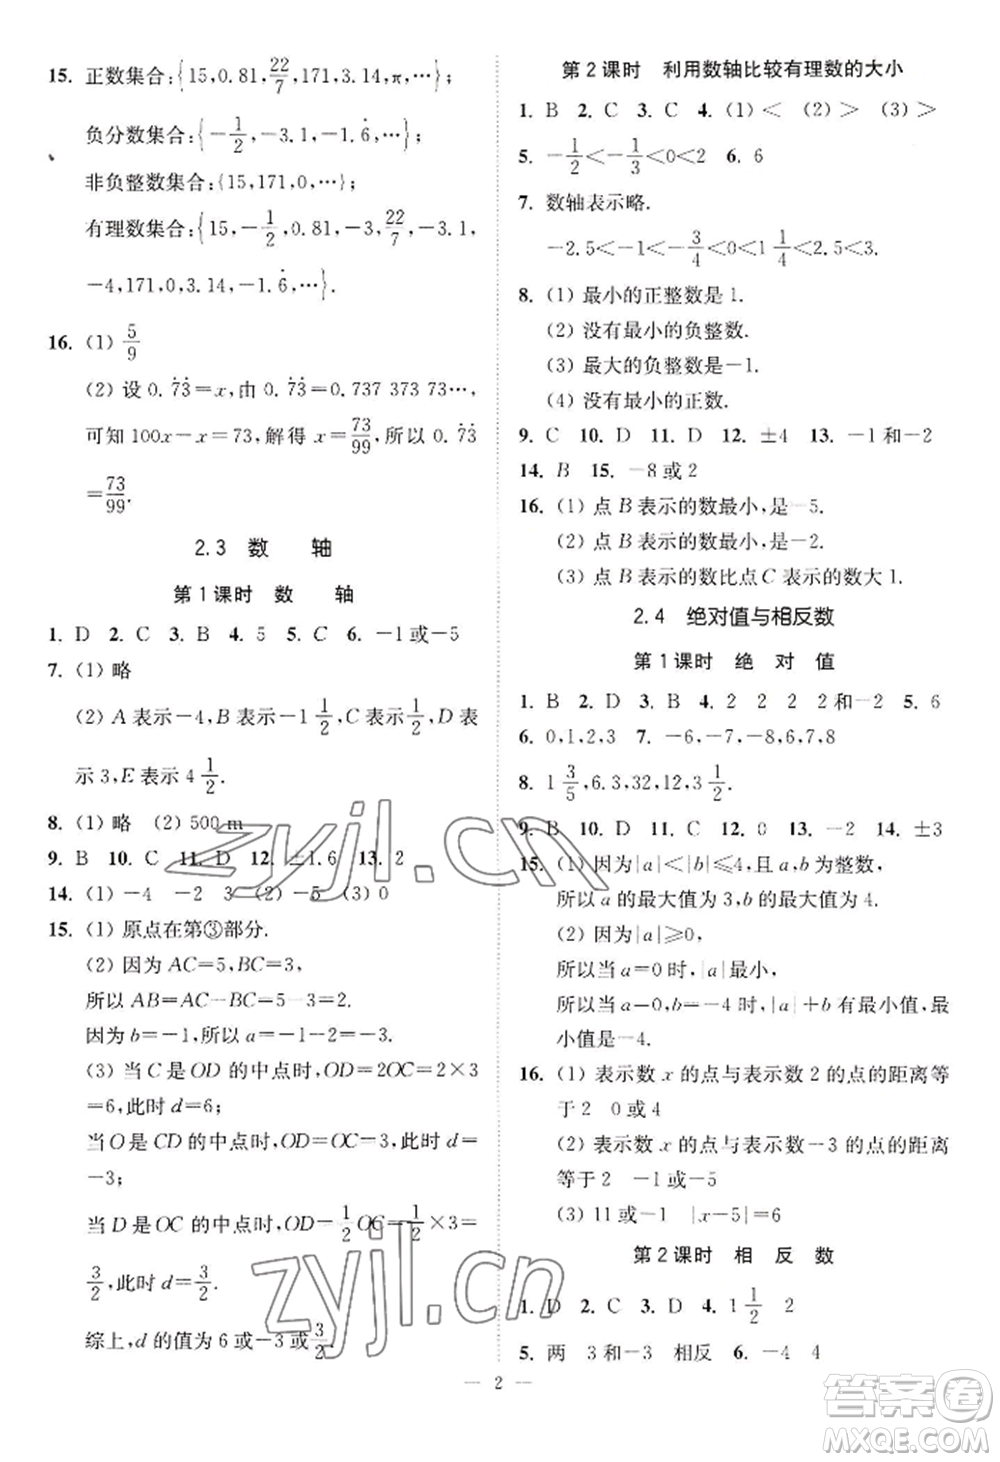 15. 正数集合:{15,0.81,22/7,171,3.14,π,…};
负分数集合:{-1/2,-3.1,-1.6̇,…};
非负整数集合:{15,171,0,…};
有理数集合:{15,-1/2,0.81,-3,22/7,-3.1,
-4,171,0,3.14,-1.6̇,…}.
16. (1) 5/9
(2) 设 0.7̇3̇=x,由 0.7̇3̇=0.737 373 73…,
可知 100x-x=73,解得 x=73/99,所以 0.7̇3̇
=73/99.
2.3 数 轴
第1课时 数 轴
1. D 2. C 3. B 4. 5 5. C 6. -1或-5
7. (1) 略
(2) A 表示-4,B 表示-1 1/2,C表示 1/2,D 表
示 3,E 表示 4 1/2.
8. (1) 略 (2) 500 m
9. B 10. C 11. D 12. ±1.6 13. 2
14. (1) -4 -2 3 (2) -5 (3) 0
15. (1) 原点在第③部分.
(2) 因为 AC=5,BC=3,
所以 AB=AC-BC=5-3=2.
因为 b=-1,所以 a=-1-2=-3.
(3) 当 C 是 OD 的中点时,OD=2OC=2×3
=6,此时 d=6;
当 O 是 CD 的中点时,OD=OC=3,此时 d=
-3;
当 D 是 OC 的中点时,OD=1/2 OC=1/2×3=
3/2,此时 d=3/2.
综上,d 的值为 6 或-3 或 3/2.
第2课时 利用数轴比较有理数的大小
1. B 2. C 3. C 4. (1) < (2) > (3) >
5. -1/2<-1/3<0<2 6. 6
7. 数轴表示略.
-2.5<-1<-3/4<0<1 1/4<2<3.
8. (1) 最小的正整数是 1.
(2) 没有最小的负整数.
(3) 最大的负整数是-1.
(4) 没有最小的正数.
9. C 10. D 11. D 12. ±4 13. -1和-2
14. B 15. -8或2
16. (1) 点 B 表示的数最小,是-5.
(2) 点 B 表示的数最小,是-2.
(3) 点 B 表示的数比点 C 表示的数大 1.
2.4 绝对值与相反数
第1课时 绝 对 值
1. B 2. D 3. B 4. 2 2 2 2和-2 5. 6
6. 0,1,2,3 7. -6,-7,-8,6,7,8
8. 1 3/5,6.3,32,12,3 1/2.
9. B 10. D 11. C 12. 0 13. -2 14. ±3
15. (1) 因为|a|<|b|≤4,且 a 为整数,
所以 a 的最大值为 3,b 的最大值为 4.
(2) 因为|a|≥0,
所以当 a=0 时,|a|最小,
所以当 a=0,b=-4 时,|a|+b 有最小值,最
小值是-4.
16. (1) 表示数 x 的点与表示数 2 的点的距离等
于 2 0 或 4
(2) 表示数 x 的点与表示数-3 的点的距离
等于 2 -1或-5
(3) 11或-1 |x-5|=6
第2课时 相 反 数
1. D 2. C 3. D 4. 1 1/2 2
5. 两 3和-3 相反 6. -4 4
— 2 —
zyjl.cn
zyjl.cn
答案卷
MXQE.COM